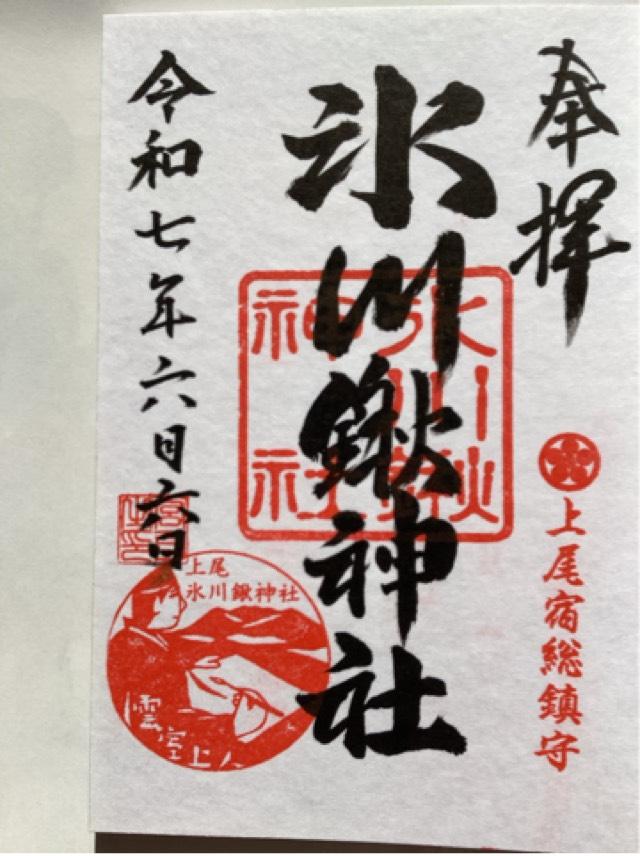 奉拝
上尾宿総鎮守
氷川鍬神社
氷川鍬
神社
令和七年六月六日
上尾
氷川鍬神社
雲室上人